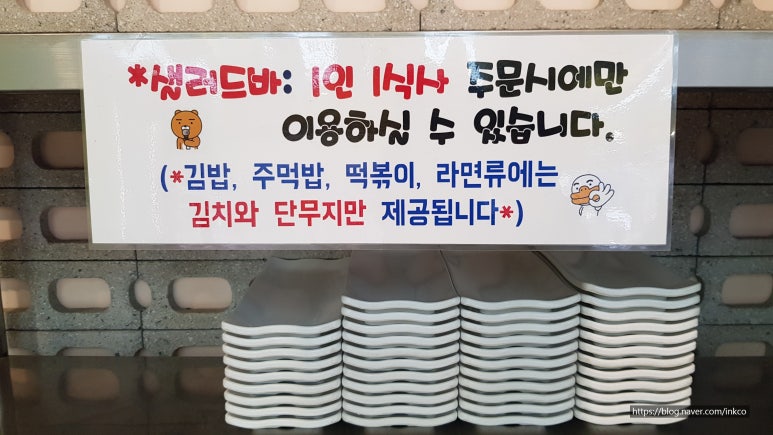 *샐러드바: 1인 1식사 주문시에만
이용하실 수 있습니다.
(*김밥, 주먹밥, 떡볶이, 라면류에는
김치와 단무지만 제공됩니다*)
https://blog.naver.com/inkco